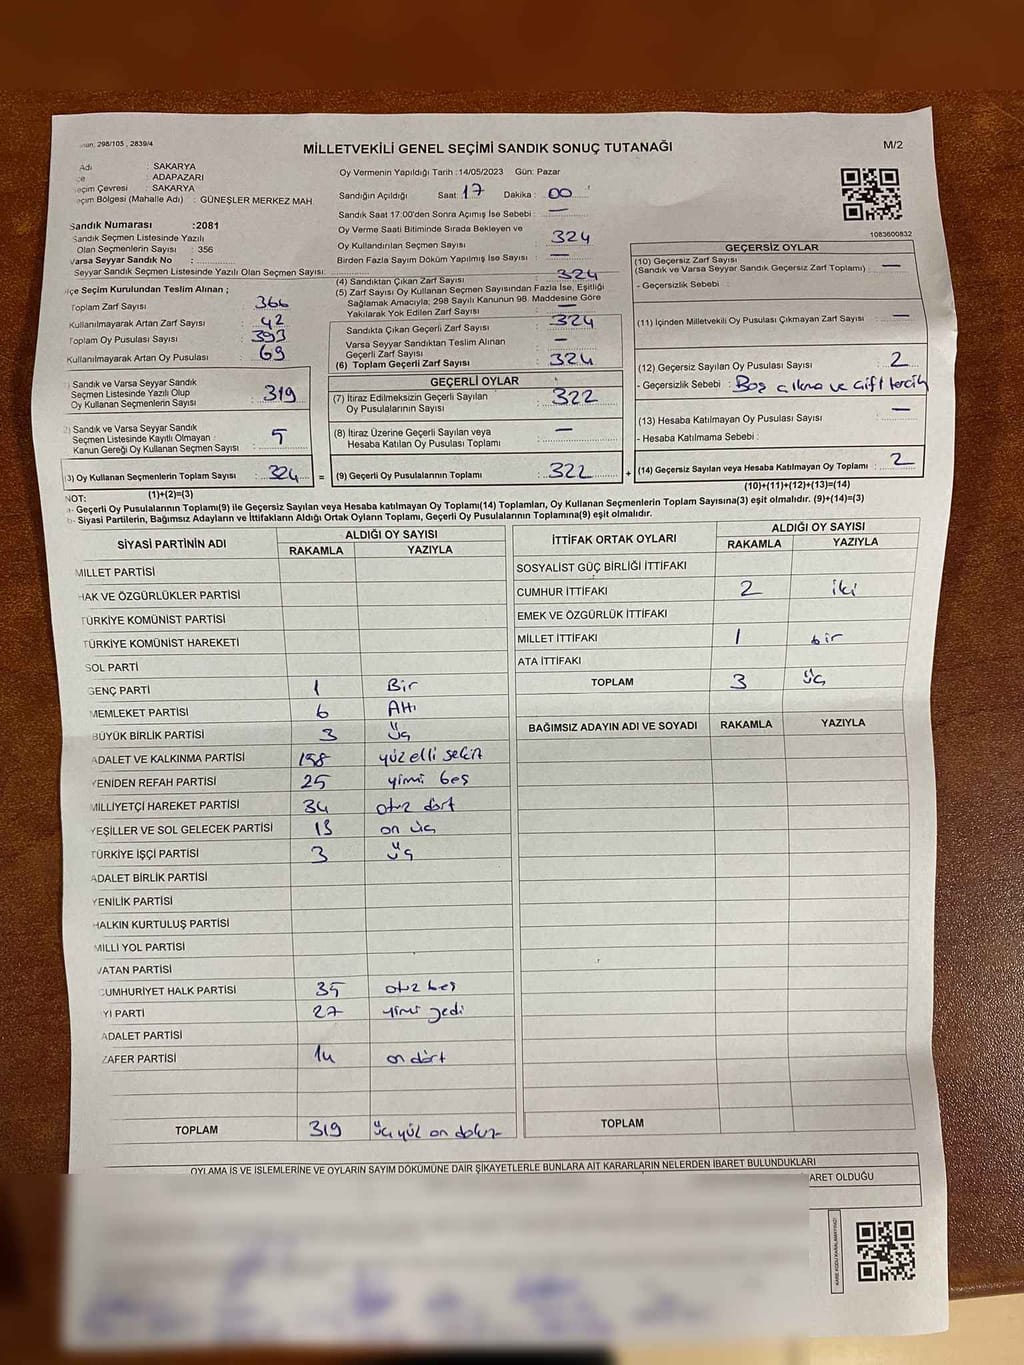 298/105 , 2839/4
MİLLETVEKİLİ GENEL SEÇİMİ SANDIK SONUÇ TUTANAĞI
M/2
Adı : SAKARYA
: ADAPAZARI
Seçim Çevresi : SAKARYA
Seçim Bölgesi (Mahalle Adı) : GÜNEŞLER MERKEZ MAH
Sandık Numarası :2081
Sandık Seçmen Listesinde Yazılı
Olan Seçmenlerin Sayısı : 356
Varsa Seyyar Sandık No :
Seyyar Sandık Seçmen Listesinde Yazılı Olan Seçmen Sayısı:
İlçe Seçim Kurulundan Teslim Alınan ;
Toplam Zarf Sayısı 366
Kullanılmayarak Artan Zarf Sayısı : 42
Toplam Oy Pusulası Sayısı : 393
Kullanılmayarak Artan Oy Pusulası : 69
Sandık ve Varsa Seyyar Sandık
Seçmen Listesinde Yazılı Olup
Oy Kullanan Seçmenlerin Sayısı : 319
Sandık ve Varsa Seyyar Sandık
Seçmen Listesinde Kayıtlı Olmayan
Kanun Gereği Oy Kullanan Seçmen Sayısı : 5
(3) Oy Kullanan Seçmenlerin Toplam Sayısı : 324 =
(1)+(2)=(3)
Oy Vermenin Yapıldığı Tarih :14/05/2023 Gün: Pazar
Sandığın Açıldığı Saat : 17 Dakika : 00
Sandık Saat 17:00'den Sonra Açımış İse Sebebi : —
Oy Verme Saati Bitiminde Sırada Bekleyen ve
Oy Kullandırılan Seçmen Sayısı : 324
Birden Fazla Sayım Döküm Yapılmış İse Sayısı : —
(4) Sandıktan Çıkan Zarf Sayısı : 324
(5) Zarf Sayısı Oy Kullanan Seçmen Sayısından Fazla İse, Eşitliği
Sağlamak Amacıyla; 298 Sayılı Kanunun 98. Maddesine Göre
Yakılarak Yok Edilen Zarf Sayısı : —
Sandıkta Çıkan Geçerli Zarf Sayısı : 324
Varsa Seyyar Sandıktan Teslim Alınan
Geçerli Zarf Sayısı : —
(6) Toplam Geçerli Zarf Sayısı : 324
GEÇERLİ OYLAR
(7) İtiraz Edilmeksizin Geçerli Sayılan
Oy Pusulalarının Sayısı : 322
(8) İtiraz Üzerine Geçerli Sayılan veya
Hesaba Katılan Oy Pusulası Toplamı : —
(9) Geçerli Oy Pusulalarının Toplamı : 322 +
1083600832
GEÇERSİZ OYLAR
(10) Geçersiz Zarf Sayısı
(Sandık ve Varsa Seyyar Sandık Geçersiz Zarf Toplamı) : —
- Geçersizlik Sebebi :
(11) İçinden Milletvekili Oy Pusulası Çıkmayan Zarf Sayısı : —
(12) Geçersiz Sayılan Oy Pusulası Sayısı : 2
- Geçersizlik Sebebi : Boş çıkma ve çift tercih
(13) Hesaba Katılmayan Oy Pusulası Sayısı : —
- Hesaba Katılmama Sebebi :
(14) Geçersiz Sayılan veya Hesaba Katılmayan Oy Toplamı : 2
(10)+(11)+(12)+(13)=(14)
NOT:
a- Geçerli Oy Pusulalarının Toplamı(9) ile Geçersiz Sayılan veya Hesaba katılmayan Oy Toplamı(14) Toplamları, Oy Kullanan Seçmenlerin Toplam Sayısına(3) eşit olmalıdır. (9)+(14)=(3)
b- Siyasi Partilerin, Bağımsız Adayların ve İttifakların Aldığı Ortak Oyların Toplamı, Geçerli Oy Pusulalarının Toplamına(9) eşit olmalıdır.
SİYASİ PARTİNİN ADI ALDIĞI OY SAYISI
RAKAMLA YAZIYLA
MİLLET PARTİSİ
HAK VE ÖZGÜRLÜKLER PARTİSİ
TÜRKİYE KOMÜNİST PARTİSİ
TÜRKİYE KOMÜNİST HAREKETİ
SOL PARTİ
GENÇ PARTİ 1 Bir
MEMLEKET PARTİSİ 6 Altı
BÜYÜK BİRLİK PARTİSİ 3 Üç
ADALET VE KALKINMA PARTİSİ 158 yüz elli sekiz
YENİDEN REFAH PARTİSİ 25 yirmi beş
MİLLİYETÇİ HAREKET PARTİSİ 34 otuz dört
YEŞİLLER VE SOL GELECEK PARTİSİ 13 on üç
TÜRKİYE İŞÇİ PARTİSİ 3 üç
ADALET BİRLİK PARTİSİ
YENİLİK PARTİSİ
HALKIN KURTULUŞ PARTİSİ
MİLLİ YOL PARTİSİ
VATAN PARTİSİ
CUMHURİYET HALK PARTİSİ 35 otuz beş
İYİ PARTİ 27 yirmi yedi
ADALET PARTİSİ
ZAFER PARTİSİ 14 on dört
TOPLAM 319 üç yüz on dokuz
İTTİFAK ORTAK OYLARI ALDIĞI OY SAYISI
RAKAMLA YAZIYLA
SOSYALİST GÜÇ BİRLİĞİ İTTİFAKI
CUMHUR İTTİFAKI 2 iki
EMEK VE ÖZGÜRLÜK İTTİFAKI
MİLLET İTTİFAKI 1 bir
ATA İTTİFAKI
TOPLAM 3 üç
BAĞIMSIZ ADAYIN ADI VE SOYADI RAKAMLA YAZIYLA
TOPLAM
OYLAMA İŞ VE İŞLEMLERİNE VE OYLARIN SAYIM DÖKÜMÜNE DAİR ŞİKAYETLERLE BUNLARA AİT KARARLARIN NELERDEN İBARET BULUNDUKLARI
BARET OLDUĞU
KARE KODU KARALAMAYINIZ!